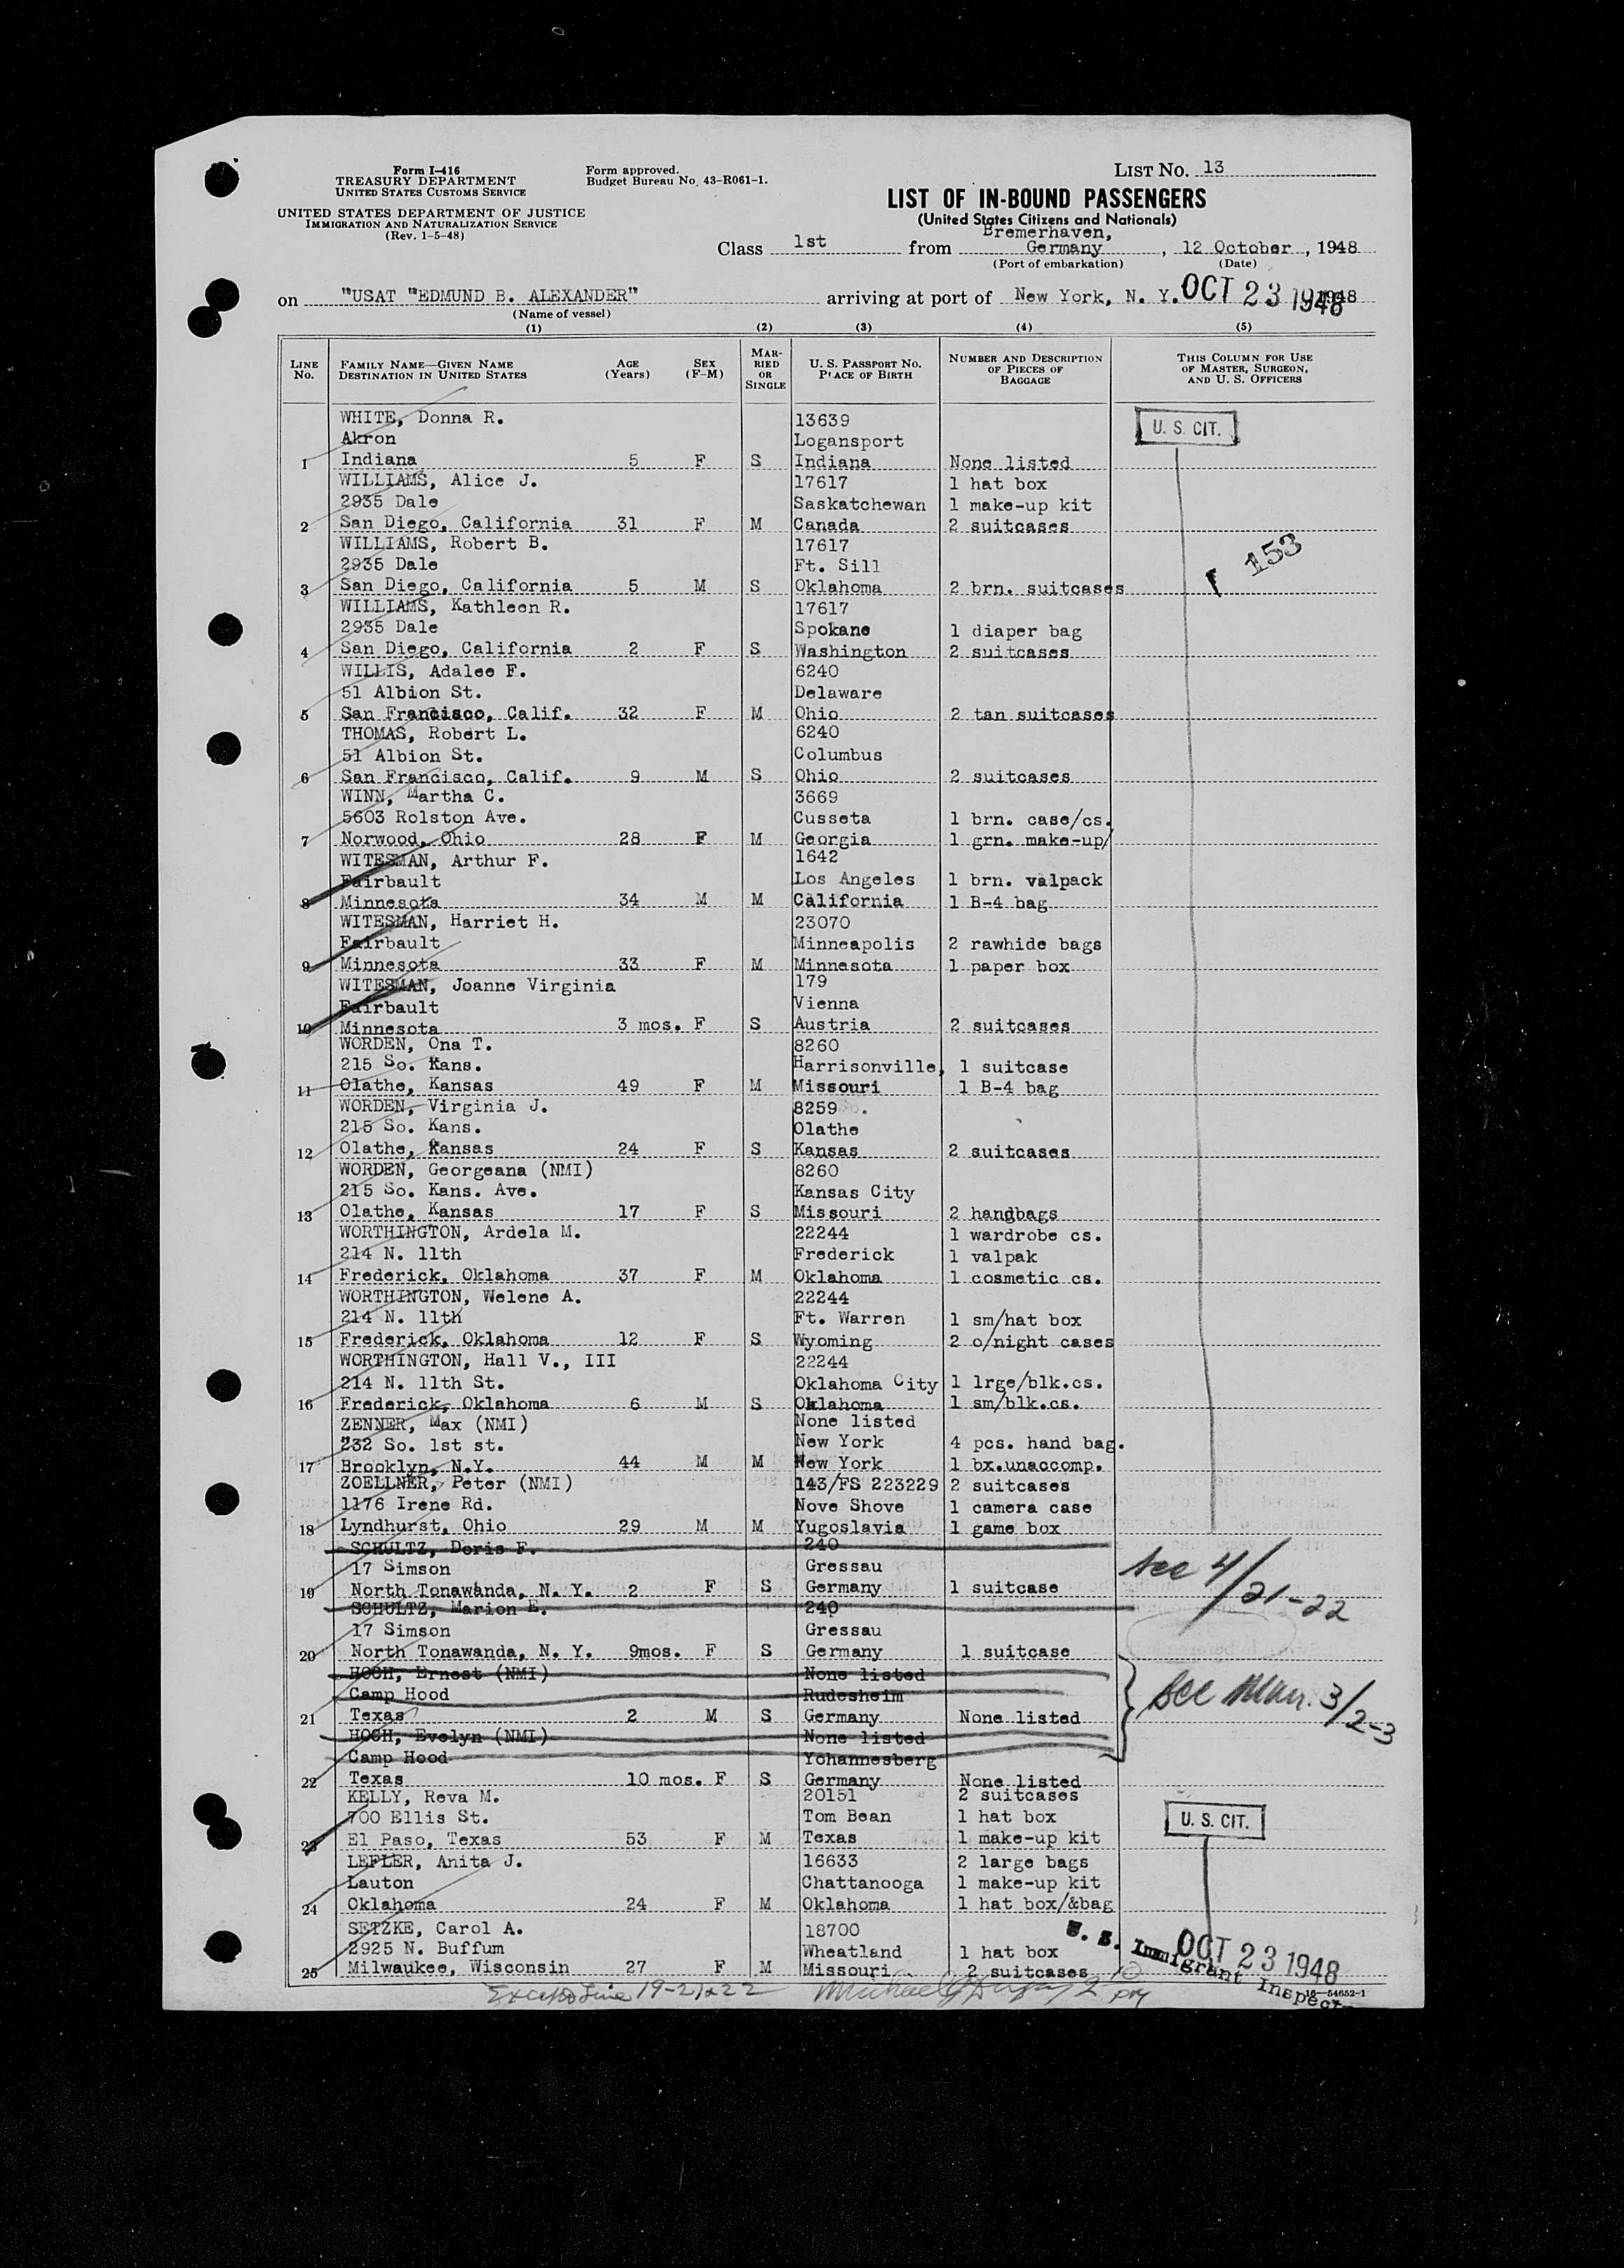 Form I-416
TREASURY DEPARTMENT
UNITED STATES CUSTOMS SERVICE
UNITED STATES DEPARTMENT OF JUSTICE
IMMIGRATION AND NATURALIZATION SERVICE
(Rev. 1-5-48)
Form approved.
Budget Bureau No. 43-R061-1.
LIST No. 13
LIST OF IN-BOUND PASSENGERS
(United States Citizens and Nationals)
Class 1st from Bremerhaven, Germany, 12 October, 1948
(Port of embarkation) (Date)
on "USAT "EDMUND B. ALEXANDER" arriving at port of New York, N. Y. OCT 23 1948 1948
(Name of vessel)
(1) (2) (3) (4) (5)
LINE No. FAMILY NAME—GIVEN NAME DESTINATION IN UNITED STATES AGE (Years) SEX (F-M) MARRIED OR SINGLE U. S. PASSPORT No. PLACE OF BIRTH NUMBER AND DESCRIPTION OF PIECES OF BAGGAGE THIS COLUMN FOR USE OF MASTER, SURGEON, AND U. S. OFFICERS
WHITE, Donna R. 13639 U. S. CIT.
Akron Logansport
1 Indiana 5 F S Indiana None listed
WILLIAMS, Alice J. 17617 1 hat box
2935 Dale Saskatchewan 1 make-up kit
2 San Diego, California 31 F M Canada 2 suitcases
WILLIAMS, Robert B. 17617
2935 Dale Ft. Sill 153
3 San Diego, California 5 M S Oklahoma 2 brn. suitcases
WILLIAMS, Kathleen R. 17617
2935 Dale Spokane 1 diaper bag
4 San Diego, California 2 F S Washington 2 suitcases
WILLIS, Adalee F. 6240
51 Albion St. Delaware
5 San Francisco, Calif. 32 F M Ohio 2 tan suitcases
THOMAS, Robert L. 6240
51 Albion St. Columbus
6 San Francisco, Calif. 9 M S Ohio 2 suitcases
WINN, Martha C. 3669
5603 Rolston Ave. Cusseta 1 brn. case/cs.
7 Norwood, Ohio 28 F M Georgia 1 grn. make-up/
WITESMAN, Arthur F. 1642
Fairbault Los Angeles 1 brn. valpack
8 Minnesota 34 M M California 1 B-4 bag
WITESMAN, Harriet H. 23070
Fairbault Minneapolis 2 rawhide bags
9 Minnesota 33 F M Minnesota 1 paper box
WITESMAN, Joanne Virginia 179
Fairbault Vienna
10 Minnesota 3 mos. F S Austria 2 suitcases
WORDEN, Ona T. 8260
215 So. Kans. Harrisonville, 1 suitcase
11 Olathe, Kansas 49 F M Missouri 1 B-4 bag
WORDEN, Virginia J. 8259
215 So. Kans. Olathe
12 Olathe, Kansas 24 F S Kansas 2 suitcases
WORDEN, Georgeana (NMI) 8260
215 So. Kans. Ave. Kansas City
13 Olathe, Kansas 17 F S Missouri 2 handbags
WORTHINGTON, Ardela M. 22244 1 wardrobe cs.
214 N. 11th Frederick 1 valpak
14 Frederick, Oklahoma 37 F M Oklahoma 1 cosmetic cs.
WORTHINGTON, Welene A. 22244
214 N. 11th Ft. Warren 1 sm/hat box
15 Frederick, Oklahoma 12 F S Wyoming 2 o/night cases
WORTHINGTON, Hall V., III 22244
214 N. 11th St. Oklahoma City 1 lrge/blk.cs.
16 Frederick, Oklahoma 6 M S Oklahoma 1 sm/blk.cs.
ZENNER, Max (NMI) None listed
232 So. 1st st. New York 4 pcs. hand bag.
17 Brooklyn, N.Y. 44 M M New York 1 bx.unaccomp.
ZOELLNER, Peter (NMI) 143/FS 223229 2 suitcases
1176 Irene Rd. Nove Shove 1 camera case
18 Lyndhurst, Ohio 29 M M Yugoslavia 1 game box
SCHULTZ, Doris F. 240
17 Simson Gressau See 4/21-22
19 North Tonawanda, N. Y. 2 F S Germany 1 suitcase
SCHULTZ, Marion E. 240
17 Simson Gressau
20 North Tonawanda, N. Y. 9mos. F S Germany 1 suitcase
HOCH, Ernest (NMI) None listed
Camp Hood Rudesheim See Man. 3/2-3
21 Texas 2 M S Germany None listed
HOCH, Evelyn (NMI) None listed
Camp Hood Yohannesberg
22 Texas 10 mos. F S Germany None listed
KELLY, Reva M. 20151 2 suitcases
700 Ellis St. Tom Bean 1 hat box U. S. CIT.
23 El Paso, Texas 53 F M Texas 1 make-up kit
LEFLER, Anita J. 16633 2 large bags
Lauton Chattanooga 1 make-up kit
24 Oklahoma 24 F M Oklahoma 1 hat box/&bag
SETZKE, Carol A. 18700
2925 N. Buffum Wheatland 1 hat box
25 Milwaukee, Wisconsin 27 F M Missouri 2 suitcases
OCT 23 1948
U. S. Immigrant Inspect
Except Line 19-21&22
16—54652-1